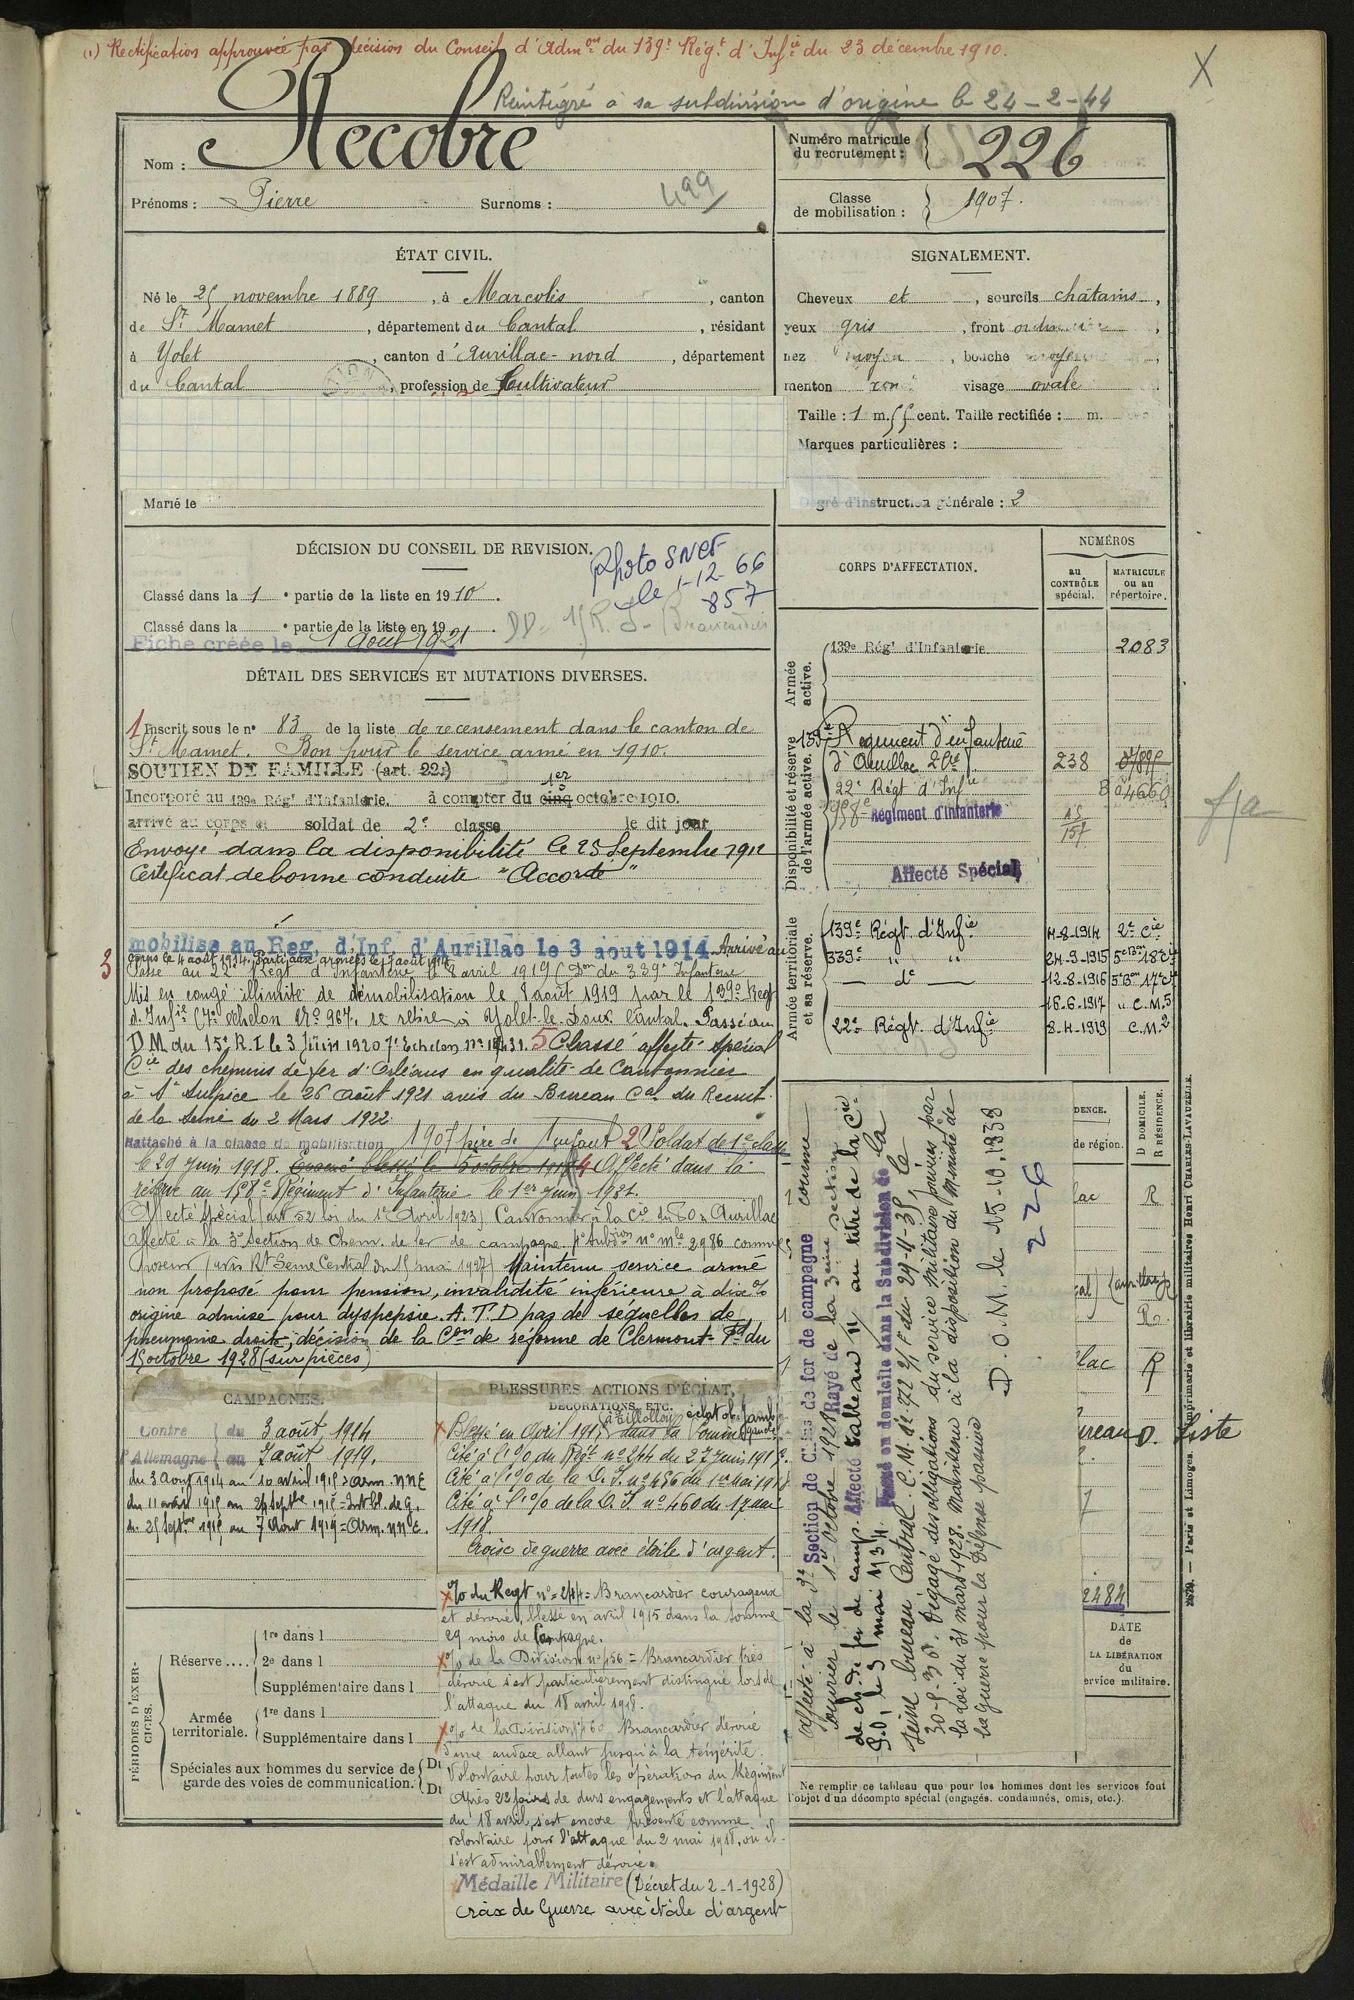 (1) Rectification approuvée par décision du Conseil d'Admon du 139e Régt d'Infie du 23 décembre 1910.
X
Réintégré à sa subdivision d'origine le 24-2-44
Nom : Recobre
Prénoms : Pierre Surnoms :
499
Numéro matricule du recrutement : 226
Classe de mobilisation : 1907.
ÉTAT CIVIL.
Né le 25 novembre 1889, à Marcolès, canton
de St Mamet, département du Cantal, résidant
à Yolet, canton d'Aurillac-nord, département
du Cantal, profession de Cultivateur
Marié le
SIGNALEMENT.
Cheveux et, sourcils châtains,
yeux gris, front ordinaire,
nez moyen, bouche moyenne,
menton rond visage ovale
Taille : 1 m. 55 cent. Taille rectifiée : m.
Marques particulières :
Degré d'instruction générale : 2
DÉCISION DU CONSEIL DE REVISION.
Photo SNCF
le 1-12-66
857
Classé dans la 1e partie de la liste en 1910.
Classé dans la e partie de la liste en 19 .
Fiche créée le 1 août 1921
Brancardier
DÉTAIL DES SERVICES ET MUTATIONS DIVERSES.
1 Inscrit sous le n° 83 de la liste de recensement dans le canton de
St Mamet. Bon pour le service armé en 1910.
SOUTIEN DE FAMILLE (art. 22.)
Incorporé au 139e Régt d'Infanterie. à compter du cinq 1er octobre 1910.
arrivé au corps et soldat de 2e classe le dit jour
Envoyé dans la disponibilité le 25 Septembre 1912
Certificat de bonne conduite "Accordé"
3 mobilisé au Reg. d'Inf. d'Aurillac le 3 aout 1914. Arrivé au
corps le 4 août 1914. Parti aux armées le 7 août 1914
Passé au 22e Régt d'Infanterie le 8 avril 1919 (Don du 339e Infanterie
Mis en congé illimité de démobilisation le 8 août 1919 par le 139e Régt
d'Infie (7e échelon N° 967, se retire à Yolet-le-Doux Cantal. Passé au
D.M. du 15e R.I. le 3 Juin 1920 7e Echelon 5 Classé affecté spécial
Cie des chemins de fer d'Orléans en qualité de Cantonnier
à St Sulpice le 26 août 1921 avis du Bureau Cal du Recrut.
de la Seine du 2 Mars 1922
Rattaché à la classe de mobilisation 1907 père de 1 enfant 2 Soldat de 1e classe
le 29 juin 1918. Evacué blessé le 5 octobre 1918 4 Affecté dans la
réserve au 158e Régiment d'Infanterie le 1er juin 1921.
Affecté Spécial (art 52 loi du 1er Avril 1923) Cantonnier à la Cie du P.O à Aurillac
Affecté à la 3e Section de Chem. de fer de campagne pe Subdion n° mle 2986 comme
poseur (avis Rt Seine Central du 15 mai 1927) Maintenu service armé
non proposé pour pension, invalidité inférieure à dix %
origine admise pour dyspepsie. A.T.D pas de séquelles de
pneumonie droite, décision de la Con de réforme de Clermont-Fd du
15 octobre 1928 (sur pièces)
CORPS D'AFFECTATION.
NUMÉROS
au CONTRÔLE spécial.
MATRICULE ou au répertoire.
Armée active.
139e Régt d'Infanterie 2083
Disponibilité et réserve de l'armée active.
139e Régiment d'infanterie
d'Aurillac 238
22e Régt d'Infie
158e Régiment d'Infanterie 15/157
Affecté Spécial
Armée territoriale et sa réserve.
139e Régt. d'Infie 11-8-1914 2e Cie
339e " " 24-9-1915 5e Bon 18e Cie
— de — 12-8-1916 5e Bon 17e Cie
16-6-1917 " C.M.5
22e Régt. d'Infie 8-4-1919 C.M.2
CAMPAGNES.
Contre l'Allemagne du 3 août 1914
au 7 août 1919.
du 3 août 1914 au 10 avril 1915 = Arm. NNE
du 11 avril 1915 au 24 septbre 1915 = Int. Bl. de g.
du 25 Septbre 1915 au 7 Aout 1919 = Arm. NNE.
BLESSURES, ACTIONS D'ÉCLAT, DÉCORATIONS, ETC.
Blessé en Avril 1915 dans la Somme (à Tilloloy) éclat obus jambe gauche
Cité à l'o/o du Régt n° 244 du 27 Juin 1917.
Cité à l'o/o de la D.I n° 456 du 1er Mai 1918
Cité à l'o/o de la D.I n° 460 du 17 mai
1918.
Croix de guerre avec étoile d'argent.
o/o du Regt n° 244 = Brancardier courageux
et dévoué, blessé en avril 1915 dans la somme
29 mois de Campagne.
o/o de la Division n° 456 = Brancardier très
dévoué s'est particulièrement distingué lors de
l'attaque du 18 avril 1918.
o/o de la Division n° 460 Brancardier dévoué
d'une audace allant jusqu'à la témérité.
Volontaire pour toutes les opérations du Régiment
Après 22 jours de durs engagements et l'attaque
du 18 avril, s'est encore présenté comme
volontaire pour l'attaque du 2 mai 1918, où il
s'est admirablement dévoué.
Médaille Militaire (Décret du 2-1-1928)
croix de Guerre avec étoile d'argent
PÉRIODES D'EXERCICES.
Réserve....
1re dans l
2e dans l
Supplémentaire dans l
Armée territoriale.
1re dans l
Supplémentaire dans l
Spéciales aux hommes du service de garde des voies de communication.
Du
Du
affecté à la 3e Section de Chins de fer de campagne comme
ouvrier le 1er Octobre 1928 Rayé de la 3eme section
de ch. de fer de camp. Affecté tableau 11 au titre de la Cie
P.O, le 3 mai 1934. Passé en domicile dans la Subdivision de la
Seine bureau Central C.M. N° 972 2/5 du 29-11-35, le
30-5-36. Dégagé des obligations du service militaire prévues par
la loi du 31 mars 1928. Maintenu à la disposition du Ministre de
la guerre pour la Défense passive D.O.M. le 15-10-1938
226
DENCE.
de région.
D DOMICILE.
R RÉSIDENCE.
lac R
cal) (aurillac)
R.
llac R
ureau D. Liste
2484
DATE
de
LA LIBÉRATION
du
service militaire.
Ne remplir ce tableau que pour les hommes dont les services font
l'objet d'un décompte spécial (engagés, condamnés, omis, etc.).
— Paris et Limoges. Imprimerie et librairie militaires Henri CHARLES-LAVAUZELLE.